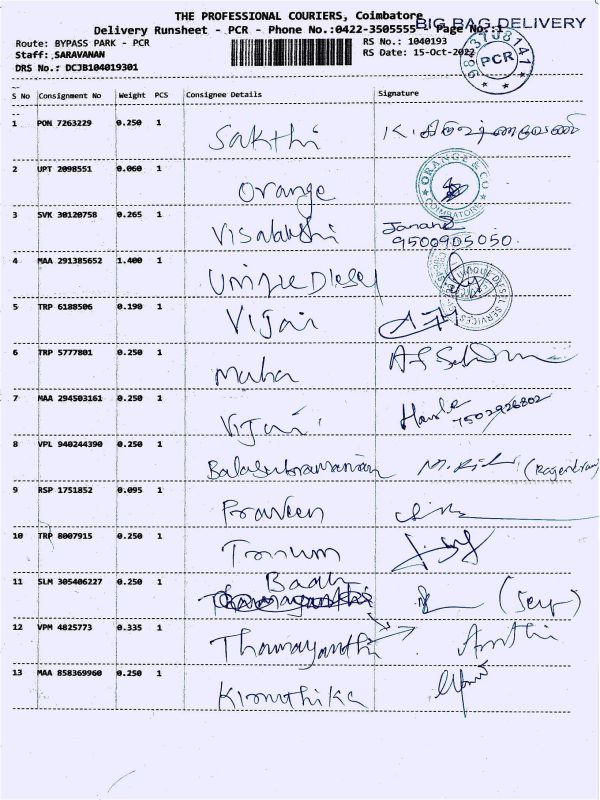 THE PROFESSIONAL COURIERS, Coimbatore
BIG BAG DELIVERY
Delivery Runsheet - PCR - Phone No.:0422-3505555 - Page No.:1
Route: BYPASS PARK - PCR
RS No.: 1040193
Staff: SARAVANAN
RS Date: 15-Oct-2022
DRS No.: DCJB104019301
PCR
S No Consignment No Weight PCS Consignee Details Signature
1 PON 7263229 0.250 1 Sakthi
2 UPT 2098551 0.060 1 Orange ORANGE & CO COIMBATORE
3 SVK 30120758 0.265 1 Visalakshi Janand
9500905050
4 MAA 291385652 1.400 1 Unique Diesel UNIQUE DIESEL SERVICES
5 TRP 6188506 0.190 1 Vijai
6 TRP 5777801 0.250 1 Maha
7 MAA 294503161 0.250 1 Vijai
8 VPL 940244390 0.250 1 Balasubramaniam
9 RSP 1751852 0.095 1 Praveen
10 TRP 8007915 0.250 1
11 SLM 305406227 0.250 1
12 VPM 4825773 0.335 1 Thamayanthi
13 MAA 858369960 0.250 1 Kiruthika